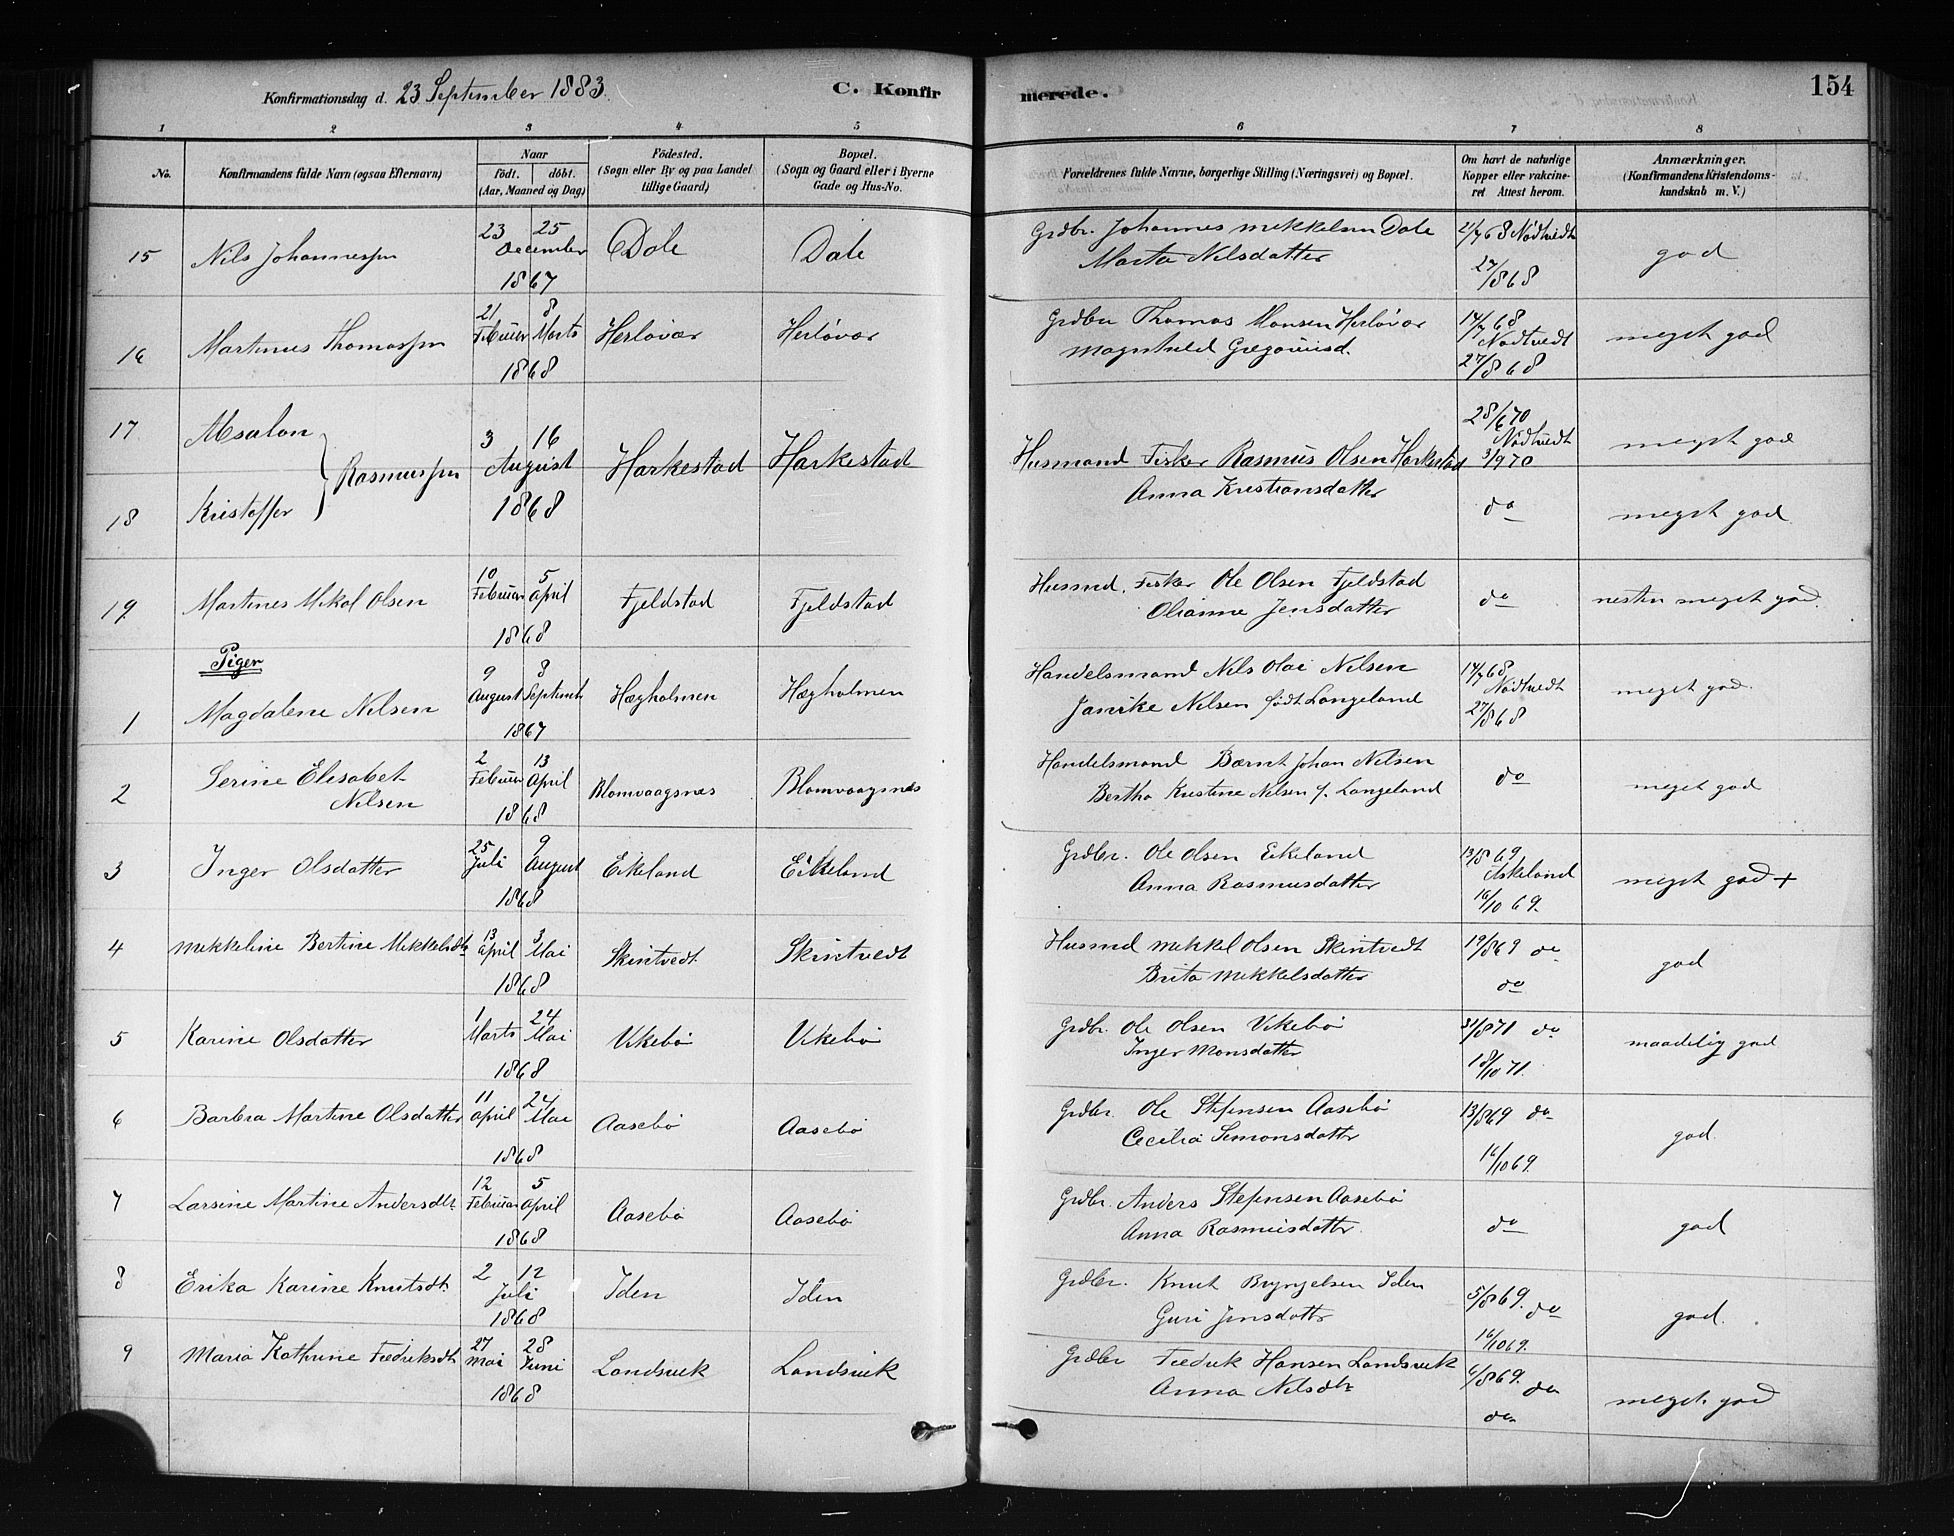 Konfirmationsdag d. 23 September 1883.
C. Konfirmerede.
154
1 2 3 4 5 6 7 8
No.
Konfirmandens fulde Navn (ogsaa Efternavn)
Naar
födt. döbt.
(Aar, Maaned og Dag)
Födested.
(Sogn eller By og paa Landet
tillige Gaard)
Bopæl.
(Sogn og Gaard eller i Byerne
Gade og Hus-No.
Forældrenes fulde Navne, borgerlige Stilling (Næringsvei) og Bopæl.
Om havt de naturlige
Kopper eller vakcine-
ret Attest herom.
Anmærkninger.
(Konfirmandens Kristendoms-
kundskab m. V.)
15 Nils Johannessen 23 25 December 1867 Dale Dale
Grdbr. Johannes Mekkelsen Dale
Marta Nilsdatter
21/7 68 Nödtvedt
27/8 68
god
16 Martinus Thomassen 21 Februar 8 Marts 1868 Herløvær Herløvær
Grdbr Thomas Monsen Herløvær
Magnhild Gregoriusd.
14/7 68
Nödtvedt
27/8 68
meget god
17 Absalon
18 Kristoffer
Rasmussen 3 16 August 1868 Harkestad Harkestad
Husmand Fisker Rasmus Olsen Harkestad
Anna Kristiansdatter
28/6 70
Nödtvedt
3/9 70
meget god
do
meget god
19. Martines Mikal Olsen 10 Februar 5 April 1868 Fjeldstad Fjeldstad
Husmd. Fisker Ole Olsen Fjeldstad
Olianne Jensdatter
do
nesten meget god.
Piger
1 Magdalene Nilsen 9 August 8 Septemb. 1867 Hægholmen Hægholmen
Handelsmand Nils Olai Nilsen
Janike Nilsen födt Langeland
14/7 68
Nödtvedt
27/8 68
meget god.
2 Serine Elisabet
Nilsen
2 Februar 13 April 1868 Blomvaagsnæs Blomvaagsnæs
Handelsmand Bærnt Johan Nilsen
Bertha Kristine Nilsen f. Langeland
do
meget god
3 Inger Olsdatter 25 Juli 9 August 1868 Eikeland Eikeland
Grdbr. Ole Olsen Eikeland
Anna Rasmusdatter
13/8 69
Askeland
16/10 69.
meget god +
4 Mekkeline Bertine Mekkelsdtr 13 April 3 Mai 1868 Skintvedt Skintvedt
Husmd Mekkel Olsen Skintvedt
Brita Mekkelsdatter
19/8 69 do
do
god
5 Karine Olsdatter 1 Marts 24 Mai 1868 Vikebö Vikebö
Grdbr. Ole Olsen Vikebö
Inger Monsdatter
31/8 71 do
18/10 71.
maadelig god
6 Barbra Martine Olsdatter 11 April 24 Mai 1868 Aasebö Aasebö
Grdbr. Ole Stefensen Aasebö
Cecilia Simonsdatter
13/8 69 do
16/10 69.
god.
7 Larsine Martine Andersdtr 12 Februar 5 April 1868 Aasebö Aasebö
Grdbr. Anders Stefensen Aasebö
Anna Rasmusdatter
do
god
8 Erika Karine Knutsdtr 2 12 Juli 1868 Iden Iden
Grdbr. Knut Bryngelsen Iden
Guri Jensdatter
5/8 69. do
16/10 69.
god.
9 Maria Kathrine Fredriksdtr 27 Mai 28 Juni 1868 Landsvik Landsvik
Grdbr Fredrik Hansen Landsvik
Anna Nilsdtr
6/8 69. do
do
meget god